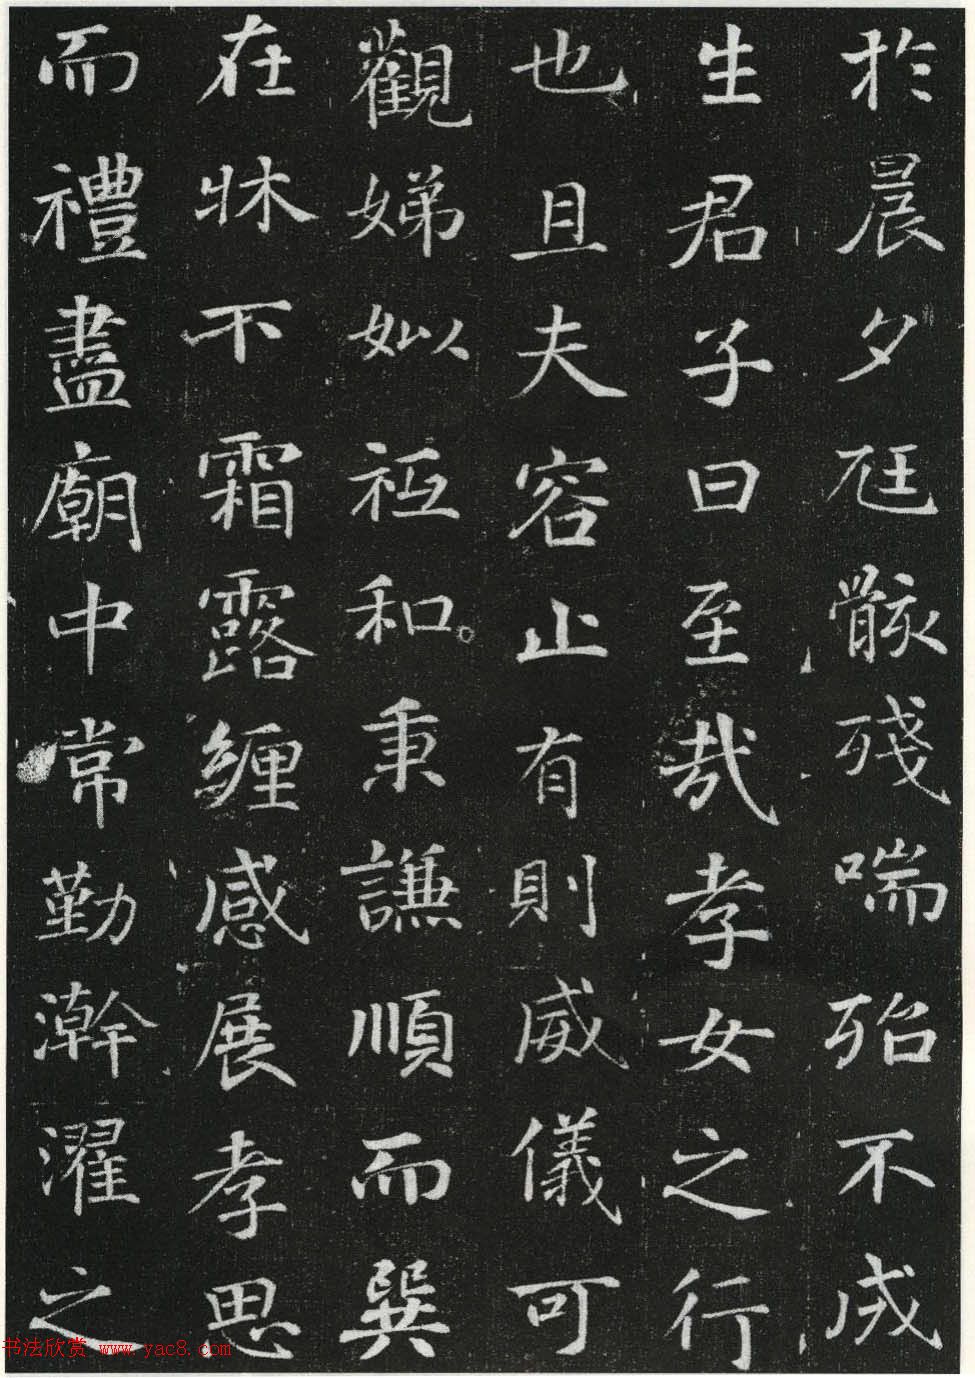 於晨夕尪骸殘喘殆不成
生君子曰至哉孝女之行
也且夫容止有則威儀可
觀娣姒祗和秉謙順而巽
在牀不霜露纏感展孝思
而禮盡廟中常勤澣濯之
书法欣赏 www.yac8.com